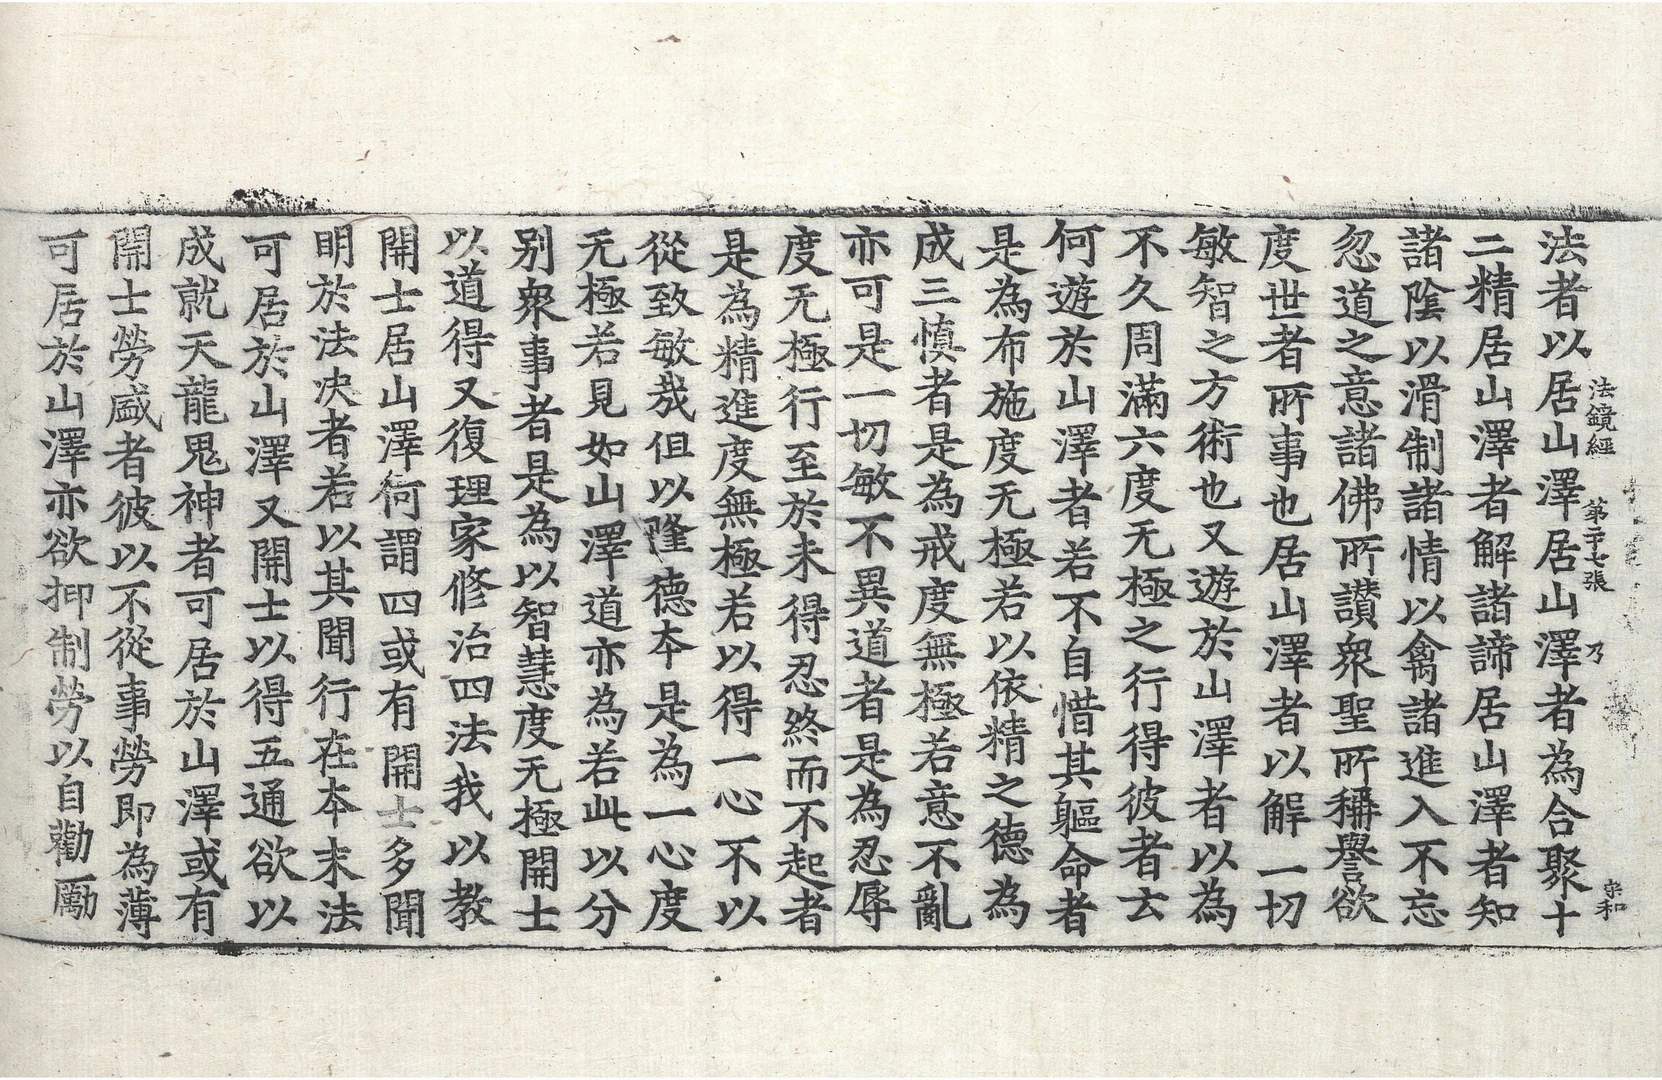 法鏡經 第二十七張 乃 宗和
法者以居山澤居山澤者為合聚十
二精居山澤者解諸諦居山澤者知
諸陰以滑制諸情以禽諸進入不忘
忽道之意諸佛所讃衆聖所稱譽欲
度世者所事也居山澤者以解一切
敏智之方術也又遊於山澤者以為
不久周滿六度无極之行得彼者云
何遊於山澤者若不自惜其軀命者
是為布施度无極若以依精之德為
成三慎者是為戒度無極若意不亂
亦可是一切敏不異道者是為忍辱
度无極行至於未得忍終而不起者
是為精進度無極若以得一心不以
從致敏㢤但以隆德本是為一心度
无極若見如山澤道亦為若此以分
别衆事者是為以智慧度无極開士
以道得又復理家修治四法我以教
開士居山澤何謂四或有開士多聞
明於法决者若以其聞行在本末法
可居於山澤又開士以得五通欲以
成就天龍鬼神者可居於山澤或有
開士勞盛者彼以不從事勞即為薄
可居於山澤亦欲抑制勞以自勸勵